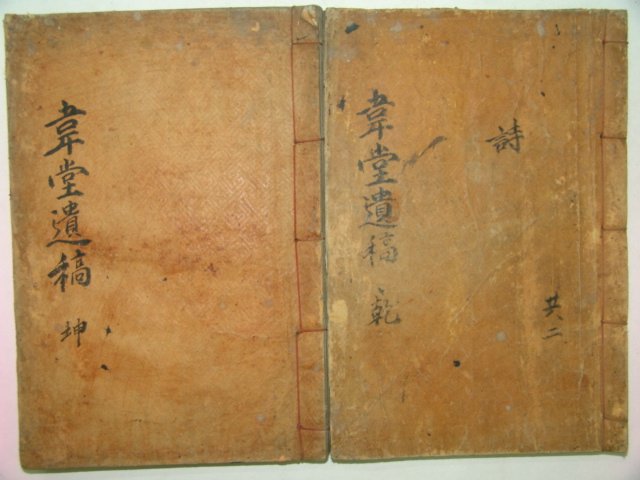 韋堂遺稿 乾
詩
共二
韋堂遺稿 坤